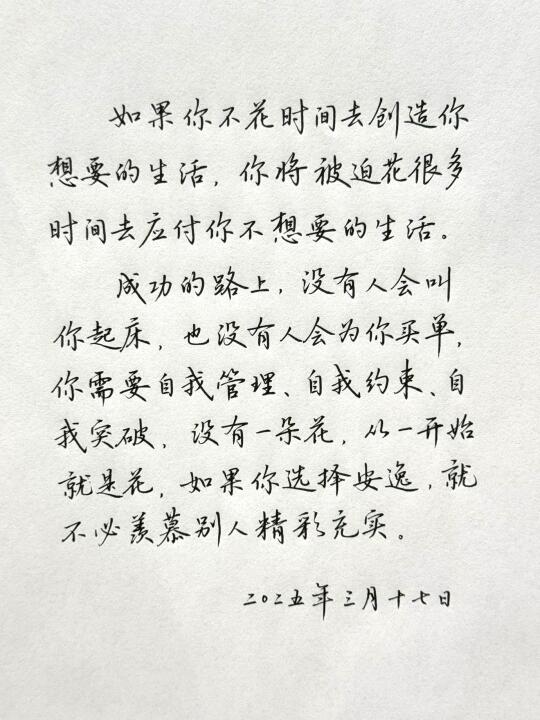 如果你不花时间去创造你
想要的生活，你将被迫花很多
时间去应付你不想要的生活。
成功的路上，没有人会叫
你起床，也没有人会为你买单，
你需要自我管理、自我约束、自
我突破，没有一朵花，从一开始
就是花，如果你选择安逸，就
不必羡慕别人精彩充实。
二〇二五年三月十七日